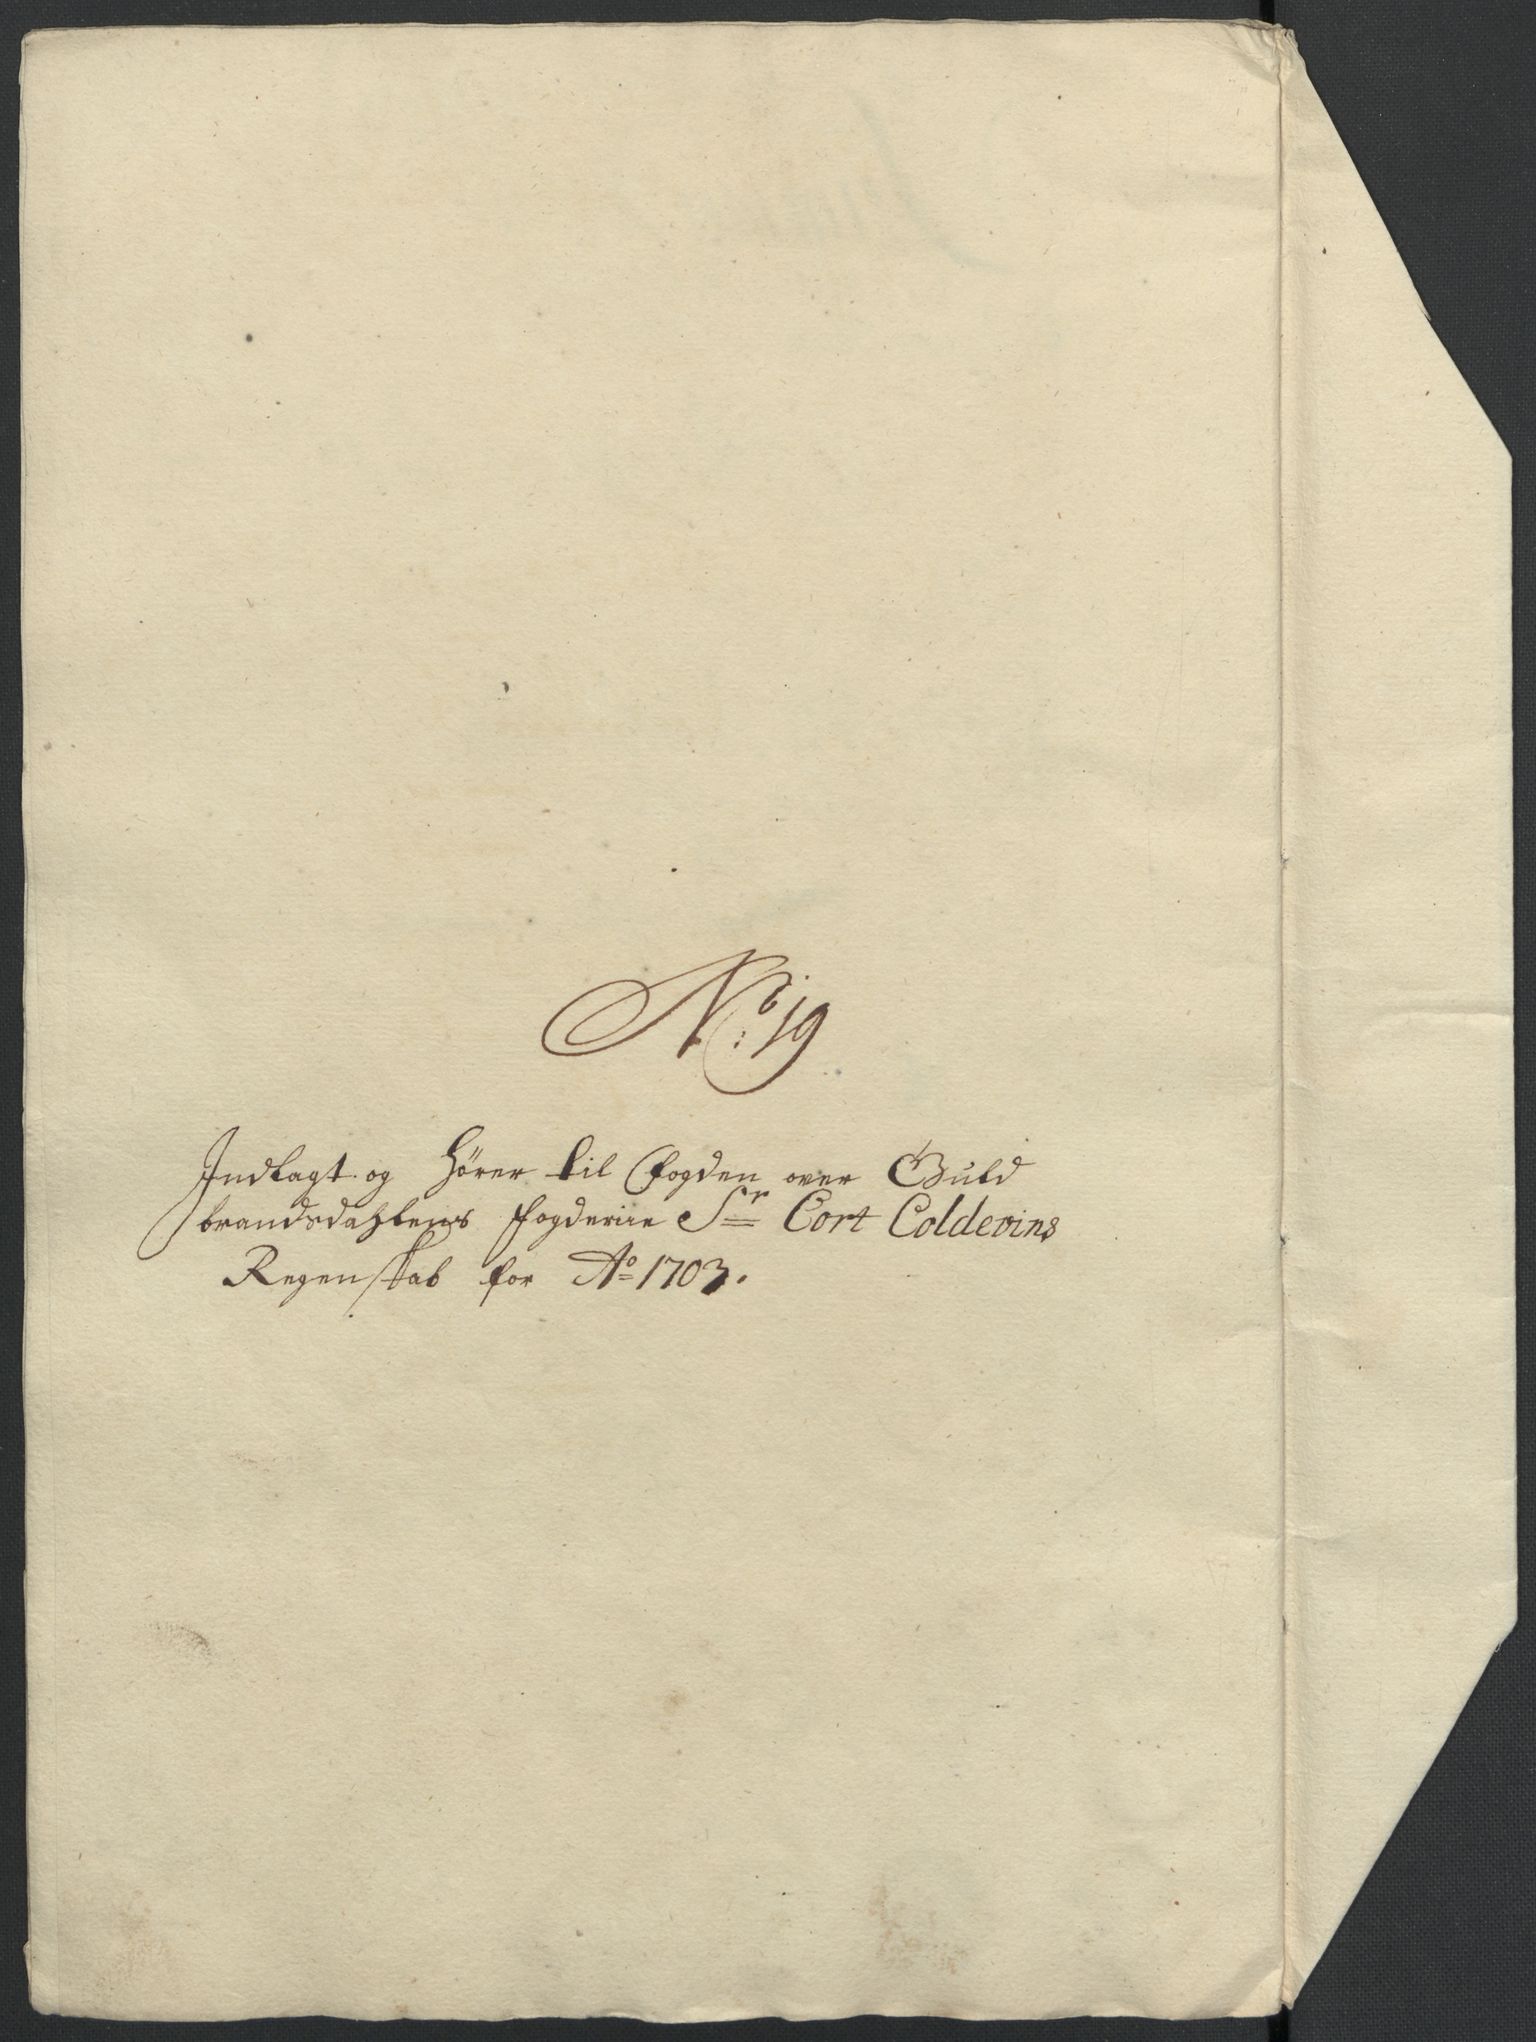 No: 19
Indlagt og hører til fogden over Guld
brandsdahlens fogderie Sr Cort Coldevins
Regenskab for Ao 1703.